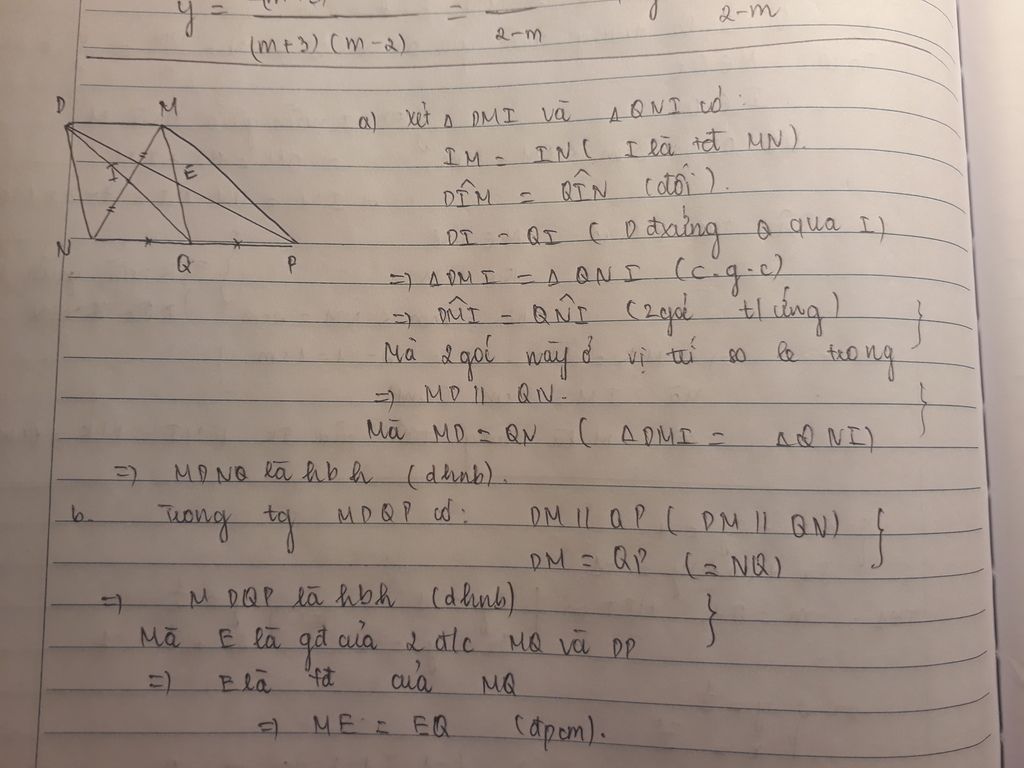 y = (m+3)(m-2) = 2-m y 2-m
D M
I E
N Q P
a) Xét Δ DMI và Δ QNI có:
IM = IN ( I là tđ MN).
DÎM = QÎN (đối).
DI = QI ( D đxứng Q qua I)
=) Δ DMI = Δ QNI (c.g.c)
=) DM̂I = QN̂I (2 góc t/ứng) }
Mà 2 góc này ở vị trí so le trong
=) MD // QN. }
Mà MD = QN ( Δ DMI = Δ QNI)
=) MDNQ là hbh (dhnb).
b. Trong tg MDQP có: DM // QP ( DM // QN) }
DM = QP (= NQ)
=) MDQP là hbh (dhnb) }
Mà E là gđ của 2 đ/c MQ và DP
=) E là tđ của MQ
=) ME = EQ (đpcm).